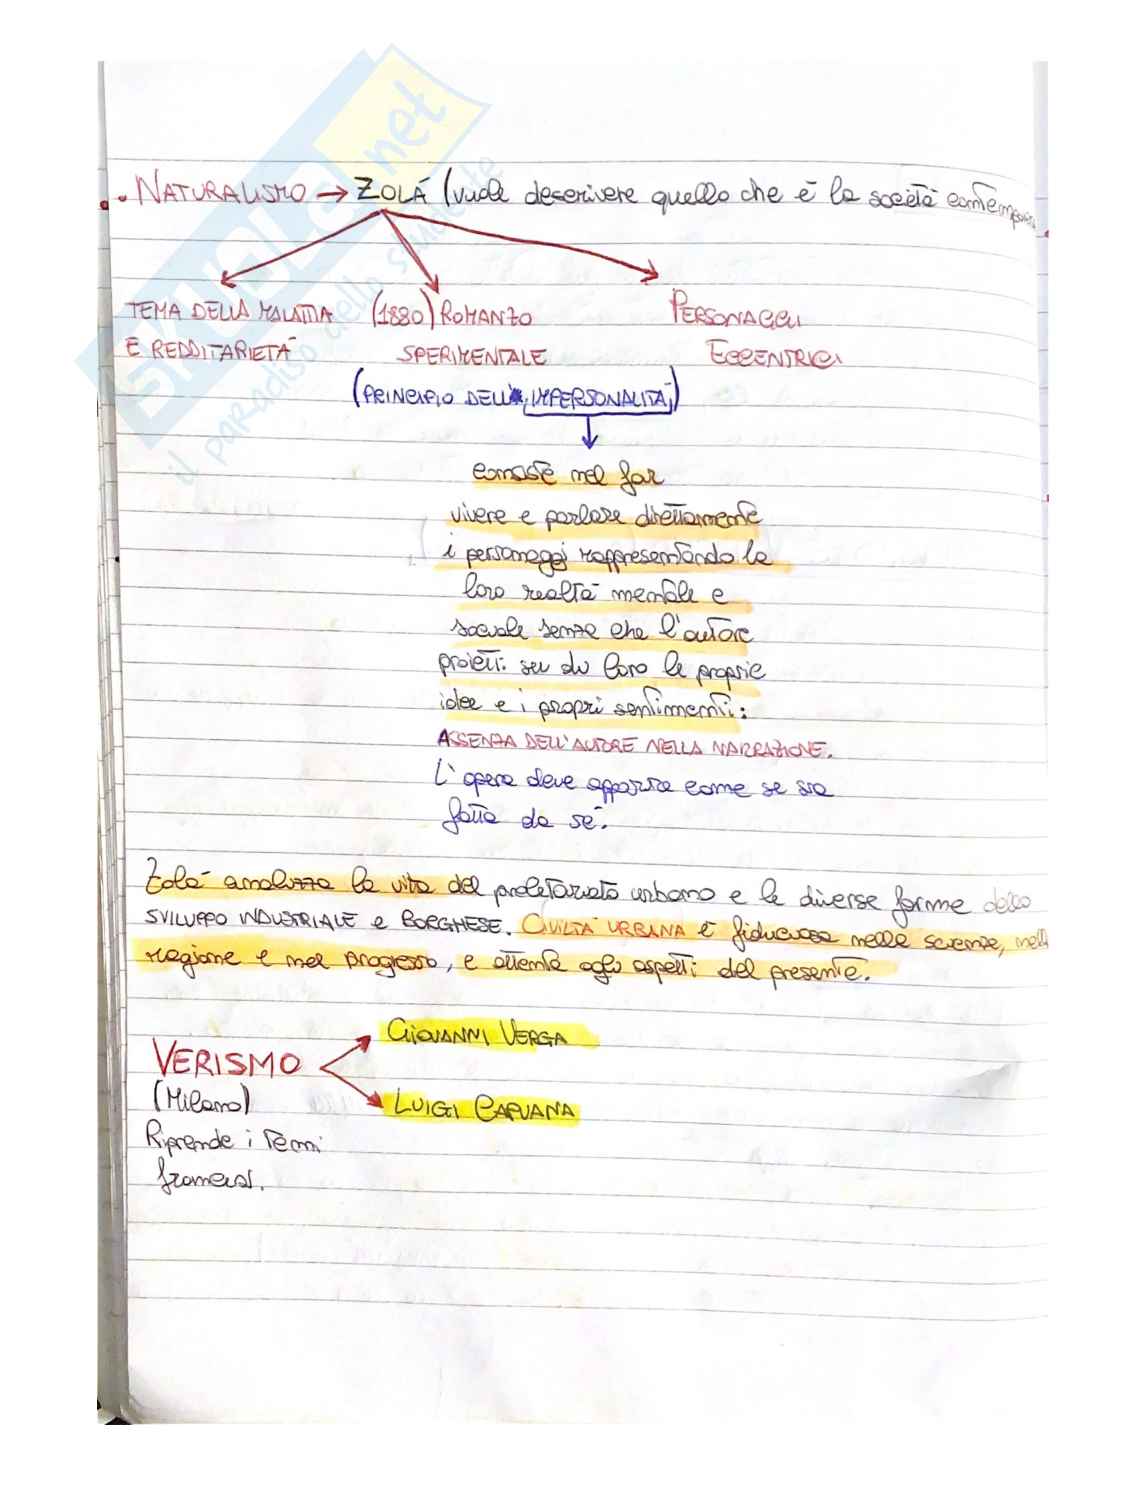 . NATURALISMO → ZOLÁ (vuole descrivere quello che è la società contemporanea
TEMA DELLA MALATTIA (1880) ROMANZO PERSONAGGI
E REDDITARIETÀ SPERIMENTALE ECCENTRICI
(PRINCIPIO DELL' IMPERSONALITÀ)
consiste nel far
vivere e parlare direttamente
i personaggi rappresentando la
loro realtà mentale e
sociale senza che l'autore
proietti su di loro le proprie
idee e i propri sentimenti:
ASSENZA DELL'AUTORE NELLA NARRAZIONE.
L'opera deve apparire come se sia
fatta da sé.
Zolà analizza la vita del proletariato urbano e le diverse forme dello
SVILUPPO INDUSTRIALE e BORGHESE. CIVILTÀ URBANA è fiduciosa nelle scienze, nella
ragione e nel progresso, e attenta agli aspetti del presente.
GIOVANNI VERGA
VERISMO
(Milano) LUIGI CAPUANA
Riprende i temi
francesi.
SKUOLA.net
il paradiso dello studente